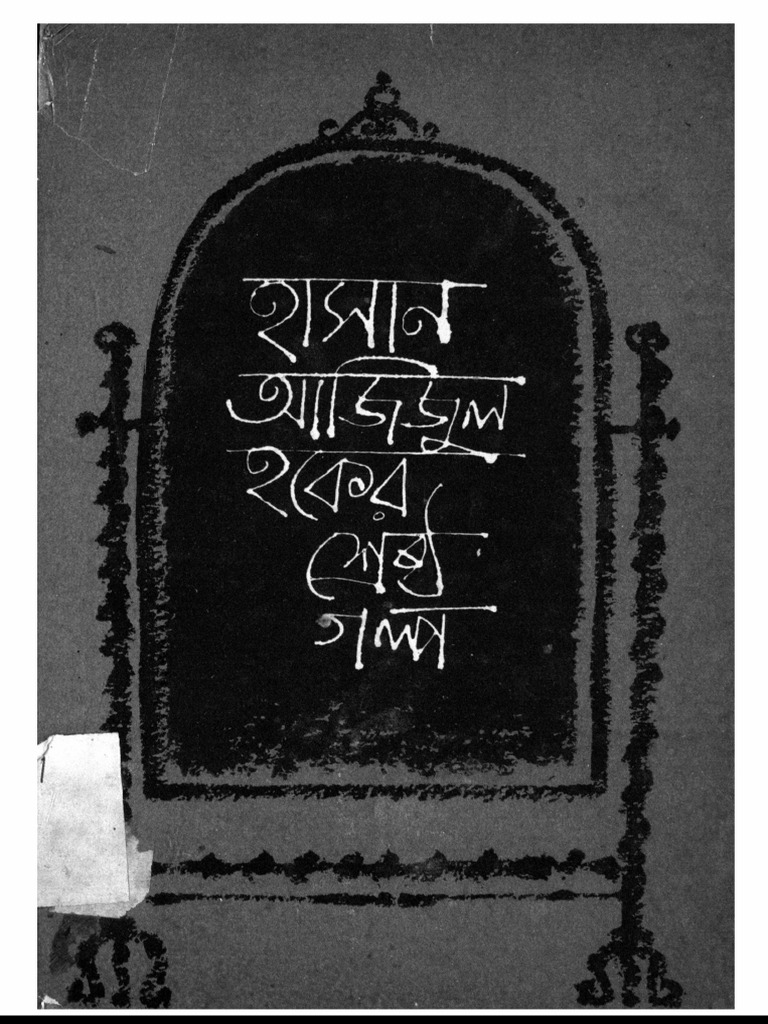 হাসান
আজিজুল
হকের
শ্রেষ্ঠ
গল্প